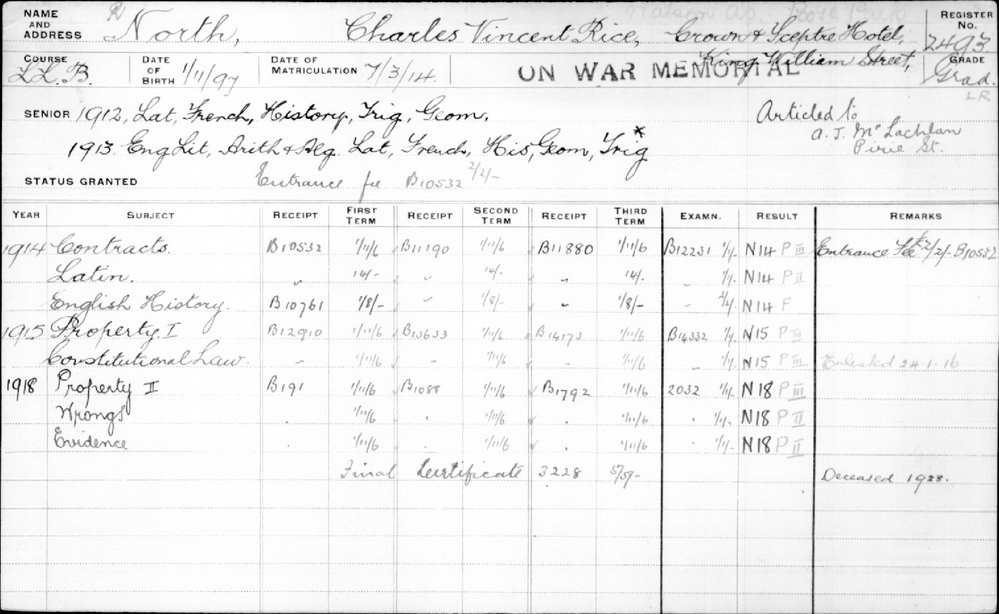 NAME AND ADDRESS R North, Charles Vincent Rice, Crown & Sceptre Hotel, King William Street, Rose Park
REGISTER No. 2493
COURSE LL.B. DATE OF BIRTH 1/11/97 DATE OF MATRICULATION 7/3/14. ON WAR MEMORIAL GRADE Grad.
LR
SENIOR 1912, Lat, French, History, Trig, Geom. Articled to
A. J. McLachlan
Pirie St.
1913 Eng Lit, Arith & Alg. Lat, French, His, Geom, Trig*
STATUS GRANTED Entrance fee B10532 2/2/-
YEAR SUBJECT RECEIPT FIRST TERM RECEIPT SECOND TERM RECEIPT THIRD TERM EXAMN. RESULT REMARKS
1914 Contracts. B10532 1/11/6 B11190 1/11/6 B11880 1/11/6 B12231 1/1/- N14 P III Entrance Fee £2/2/- B10532
Latin. 14/- " 14/- " 14/- " 1/1/- N14 P II
English History. B10761 1/8/- " 1/8/- " 1/8/- " 2/1/- N14 F
1915 Property I B12910 1/11/6 B13633 1/11/6 B14173 1/11/6 B14332 1/1/- N15 P III
Constitutional Law. " 1/11/6 " 1/11/6 " 1/11/6 1/1/- N15 P III Enlisted 24.1.16
1918 Property II B191 1/11/6 B1088 1/11/6 B1792 1/11/6 2032 1/1/- N18 P III
Wrongs . 1/11/6 . 1/11/6 . 1/11/6 . 1/1/- N18 P II
Evidence . 1/11/6 . 1/11/6 . 1/11/6 . 1/1/- N18 P II
Final Certificate 3228 5/5/- Deceased 1928.